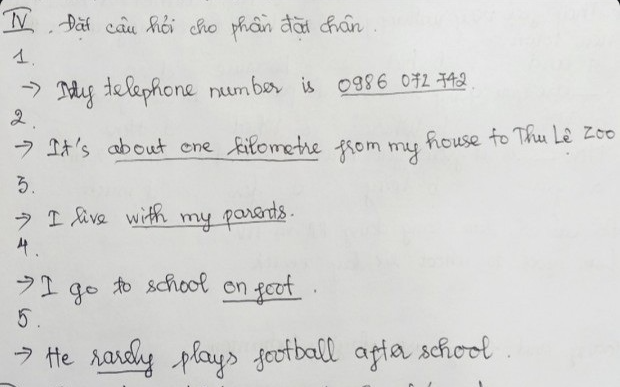 IV. Đặt câu hỏi cho phần đặt chân.
1.
→ My telephone number is 0986 072 742.
2.
→ It's about one kilometre from my house to Thu Lệ Zoo
3.
→ I live with my parents.
4.
→ I go to school on foot.
5.
→ He rarely plays football after school.